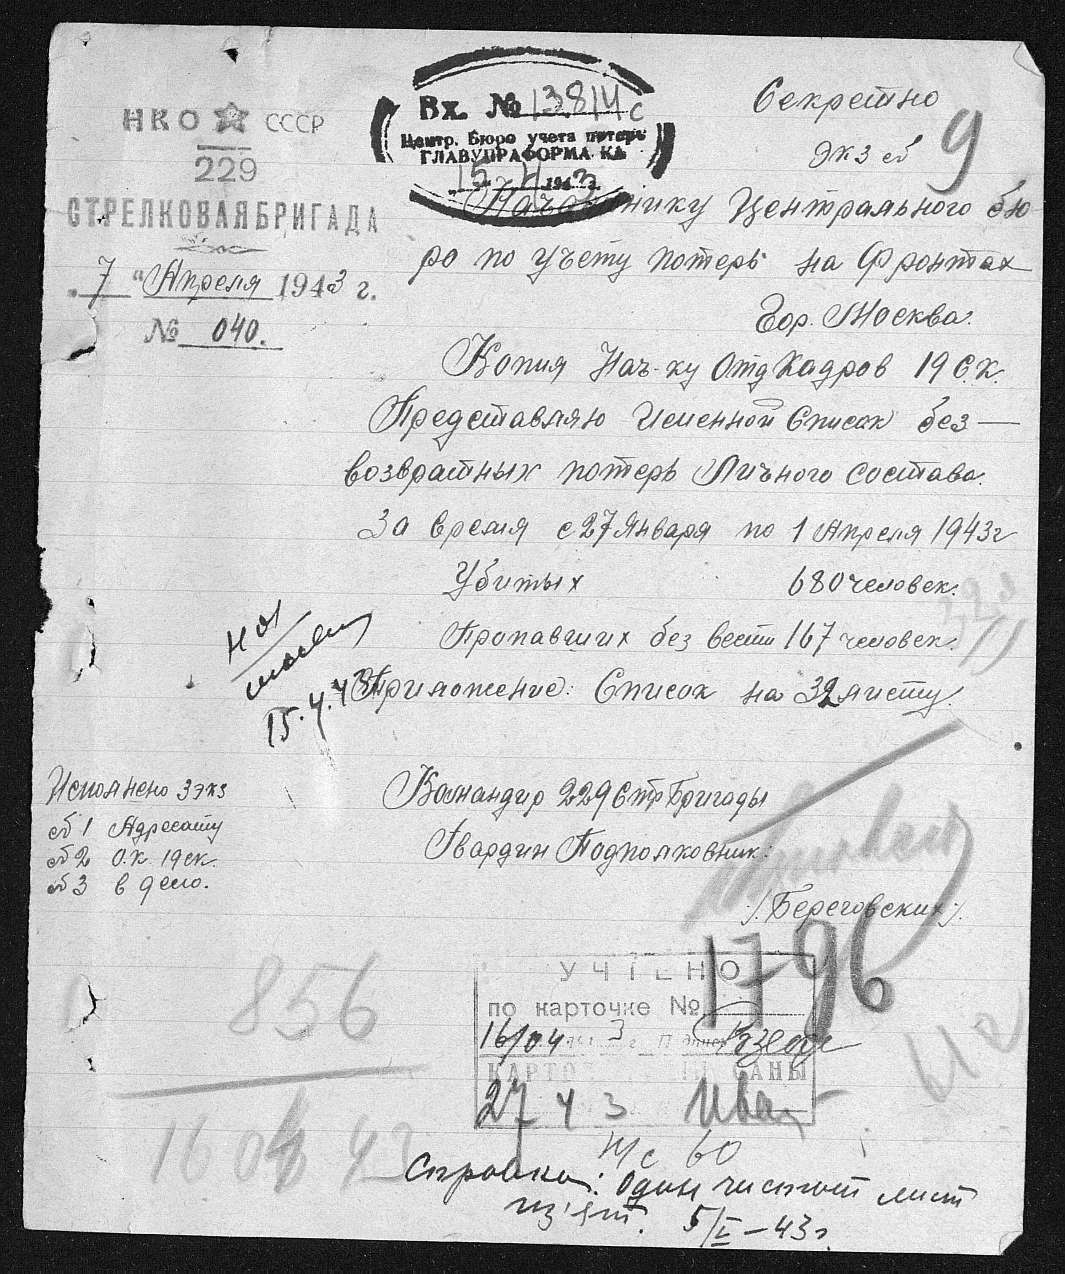 НКО СССР
229
СТРЕЛКОВАЯ БРИГАДА
"7" Апреля 1943 г.
№ 040.
Вх. № 13814с
Центр. Бюро учета потерь
ГЛАВУПРАФОРМА КА
"15" 4 1943 г.
Секретно
экз № 9
Начальнику Центрального бю
ро по учету потерь на Фронтах
Гор. Москва.
Копия Нач-ку Отд Кадров 19 С.К.
Представляю Именной Список без—
возвратных потерь Личного состава.
За время с 27 Января по 1 Апреля 1943г
Убитых 680 человек.
Пропавших без вести 167 человек.
Приложение: Список на 32 листу.
15.4.43
Командир 229 Стр Бригады
Гвардии Подполковник:
/.Береговских/.
Исполнено 3 экз
№ 1 Адресату
№ 2 О.К. 19ск.
№ 3 в дело.
856
УЧТЕНО
по карточке № 17-96
16/04 3 г.
27 4 3
16 04 43
Справка: Один чистый лист
из'ят. 5/V-43г.